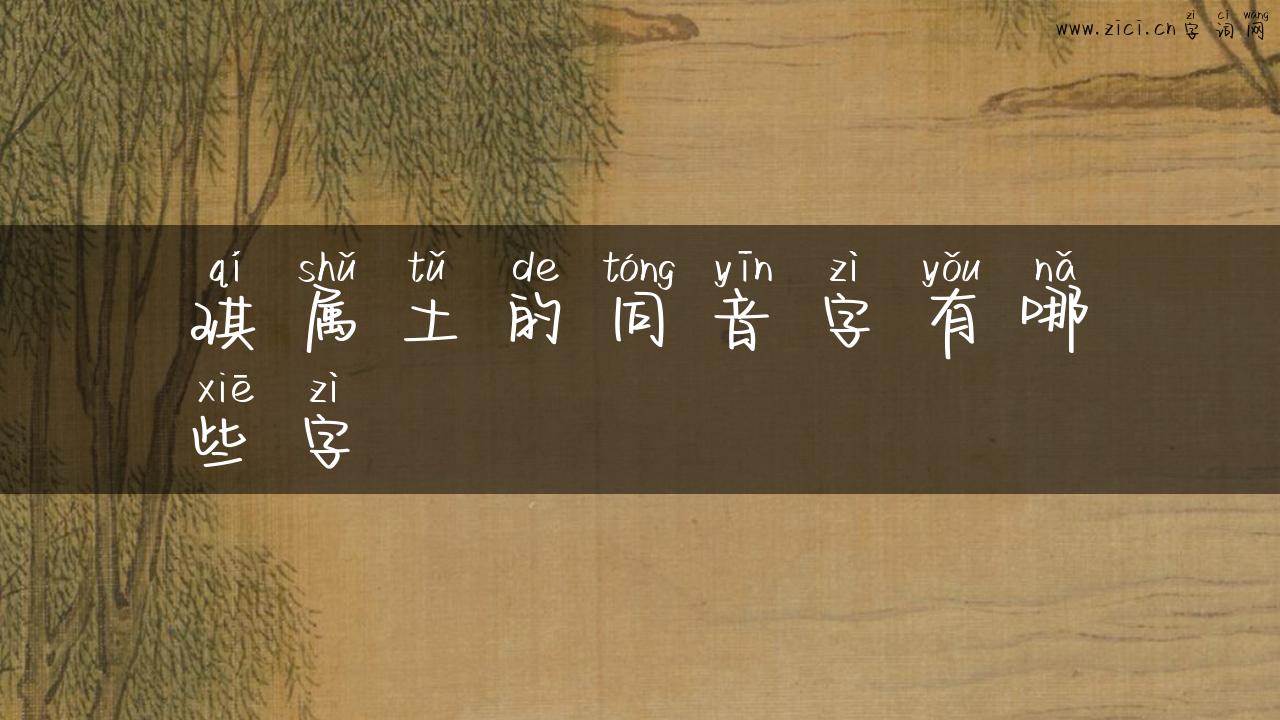 zì cí wǎng
www.zici.cn字词网
qí shǔ tǔ de tóng yīn zì yǒu nǎ
琪属土的同音字有哪
xiē zì
些字